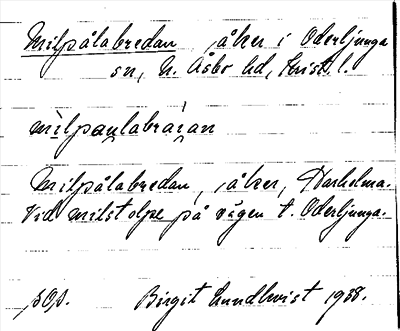 Milpålabredan, åker i Oderljunga
sn, N. Åsbo hd, Krist. l.
milpaulabraian
Milpålabredan, åker, Harholma.
Vid milstolpe på vägen t. Oderljunga.
Birgit Lundkvist 1938.